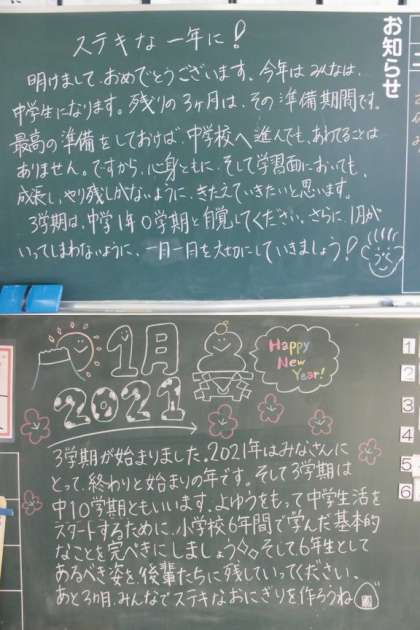 お知らせ
ステキな一年に!
明けまして、おめでとうございます。今年は みんなは、
中学生になります。残りの3ヶ月は、その準備期間です。
最高の準備をしておけば、中学校へ進んでも、あわてることは
ありません。ですから、心身ともに、そして学習面においても、
成長し、やり残しがないように、きたえていきたいと思います。
3学期は、中学1年0学期と自覚してください。さらに、1月が
いってしまわないように、一日一日を大切にしていきましょう!
1月
2021
Happy
New
Year!
3学期が始まりました。2021年はみなさんに
とって、終わりと始まりの年です。そして3学期は
中1 0学期ともいいます。よゆうをもって中学生活を
スタートするために、小学校6年間で学んだ基本的
なことを完ぺきにしましょう。そして6年生として
あるべき姿を後輩たちに残していってください。
あと3ヶ月、みんなでステキなおにぎりを作ろうね
1
2
3
4
5
6